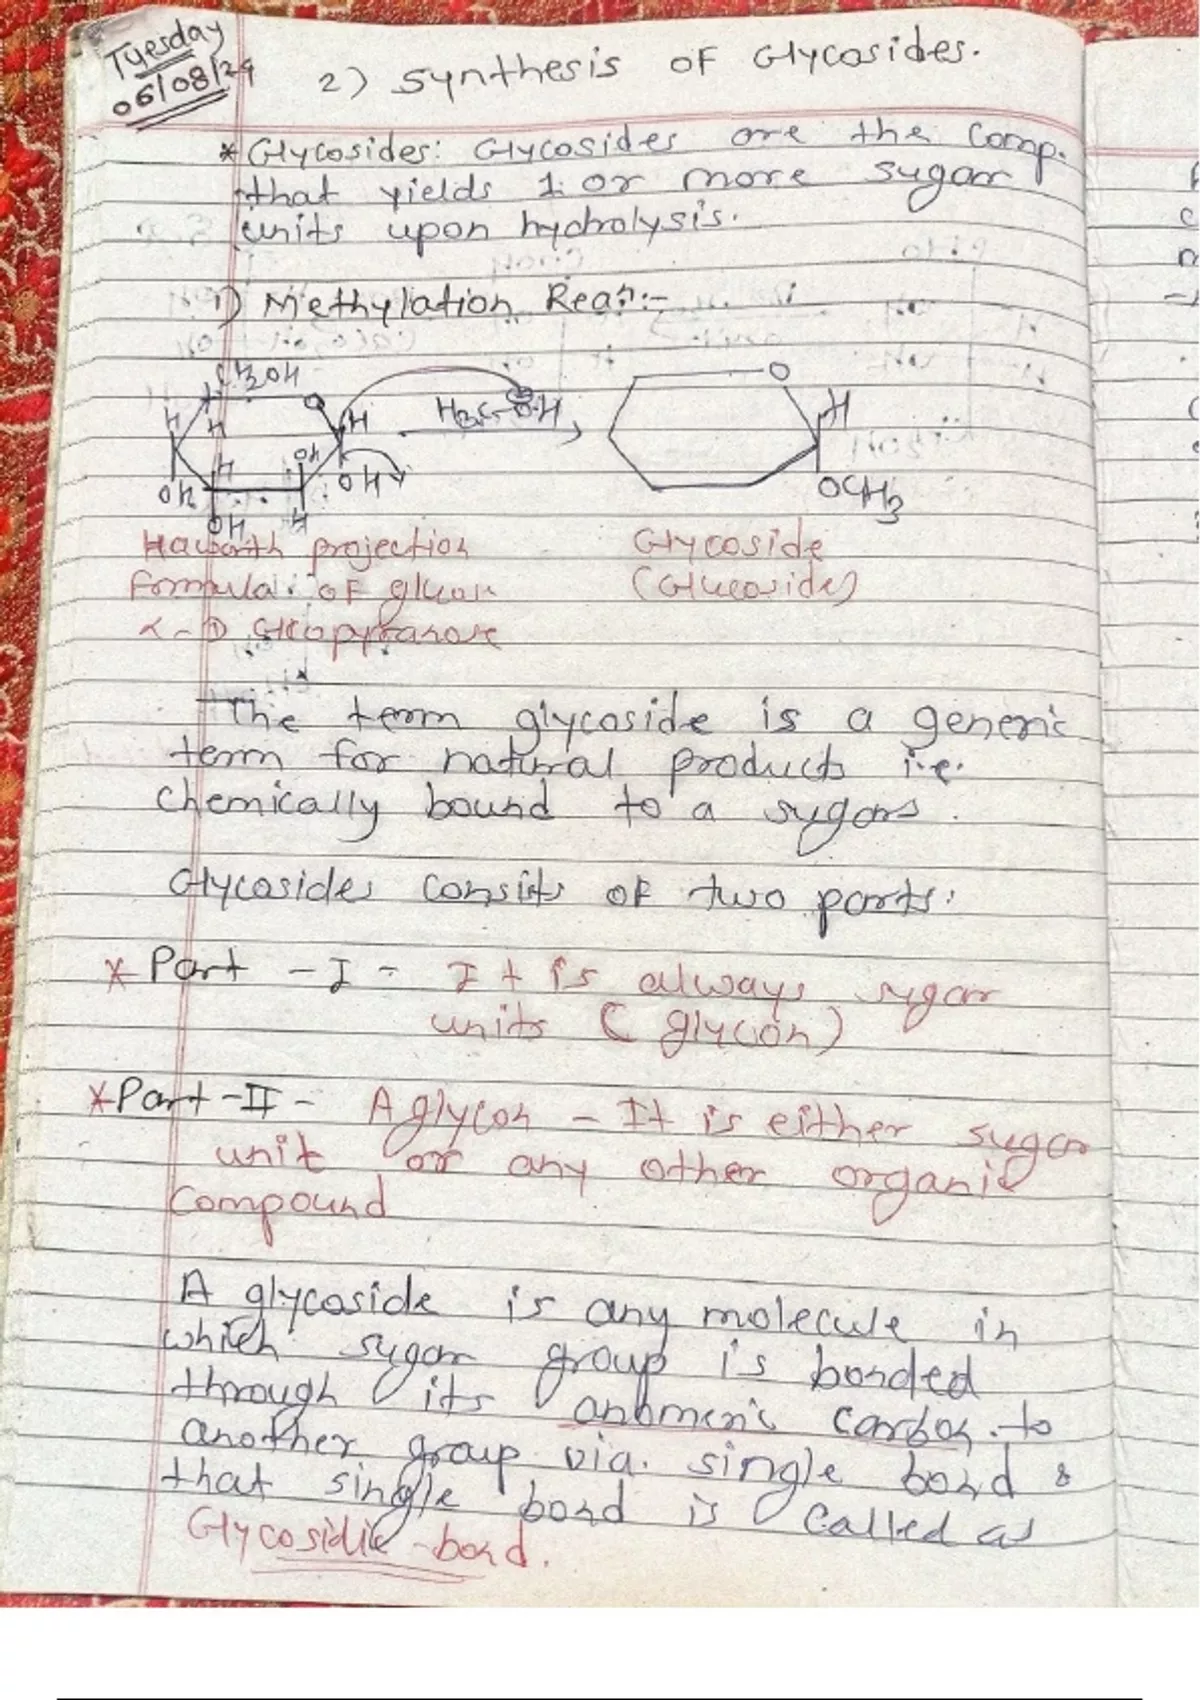 Tuesday
06/08/24
2) Synthesis of Glycosides.
* Glycosides: Glycosides are the Comp.
that yields 1 or more sugar
units upon hydrolysis.
1) Methylation Rean:-
CH2OH
O
O
H
H
H
H3C-O-H
H
H
OH
OH
OH
OCH3
OH
H
Haworth projection
Glycoside
formula of glucose
(Glucoside)
α-D Glcopyranose
The term glycoside is a generic
term for natural products i.e.
chemically bound to a sugars.
Glycosides consists of two parts:
* Part - I - It is always sugar
units (glycon)
* Part - II - Aglycon - It is either sugar
unit or any other organic
Compound
A glycoside is any molecule in
which sugar group is bonded
through its anomeric carbon to
another group via. single bond &
that single bond is called as
Glycosidic-bond.